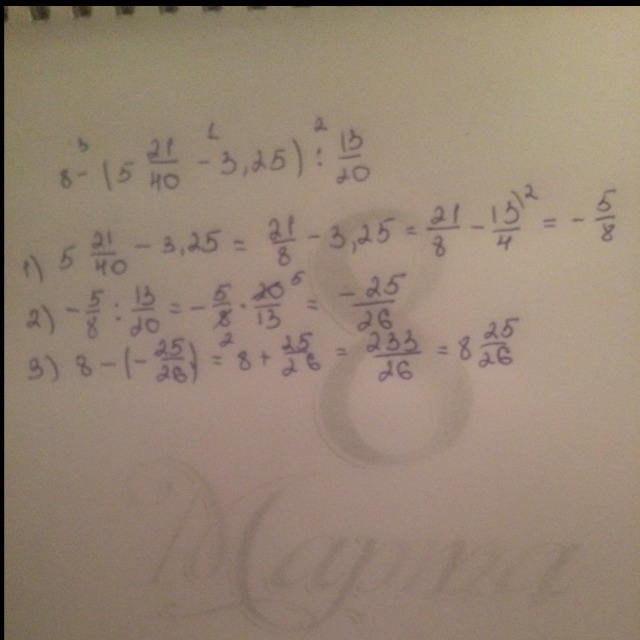 8 - (5 21/40 - 3,25) : 13/20
1) 5 21/40 - 3,25 = 21/8 - 3,25 = 21/8 - 13/4 = - 5/8
2) - 5/8 : 13/20 = - 5/8 · 20/13 = - 25/26
3) 8 - (- 25/26) = 8 + 25/26 = 233/26 = 8 25/26
8 Марта